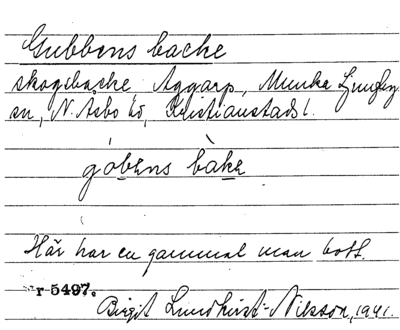 Gubbens backe
skogsbacke Aggarp, Munka Ljungby
sn, N. Åsbo hd, Kristianstads l.
gȯbens bàke
Här har en gammal man bott.
r 5497.
Birgit Lundkvist-Nilsson, 1941.